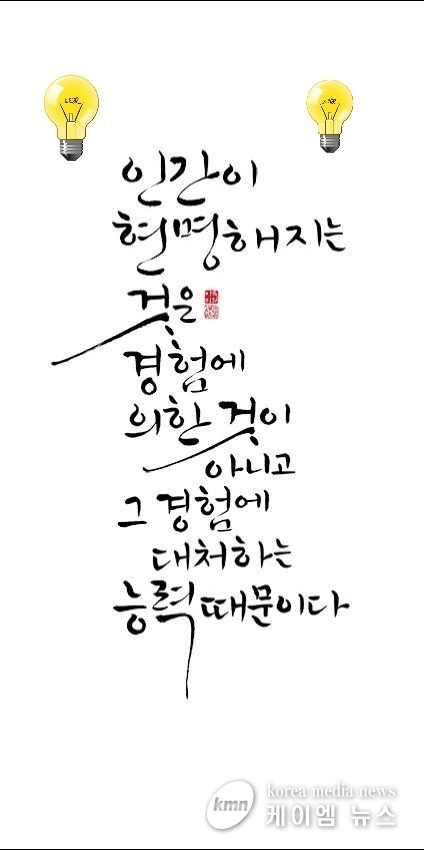 인간이
현명해지는
것은
경험에
의한 것이
아니고
그 경험에
대처하는
능력때문이다
korea media news
kmn
케이엠 뉴스